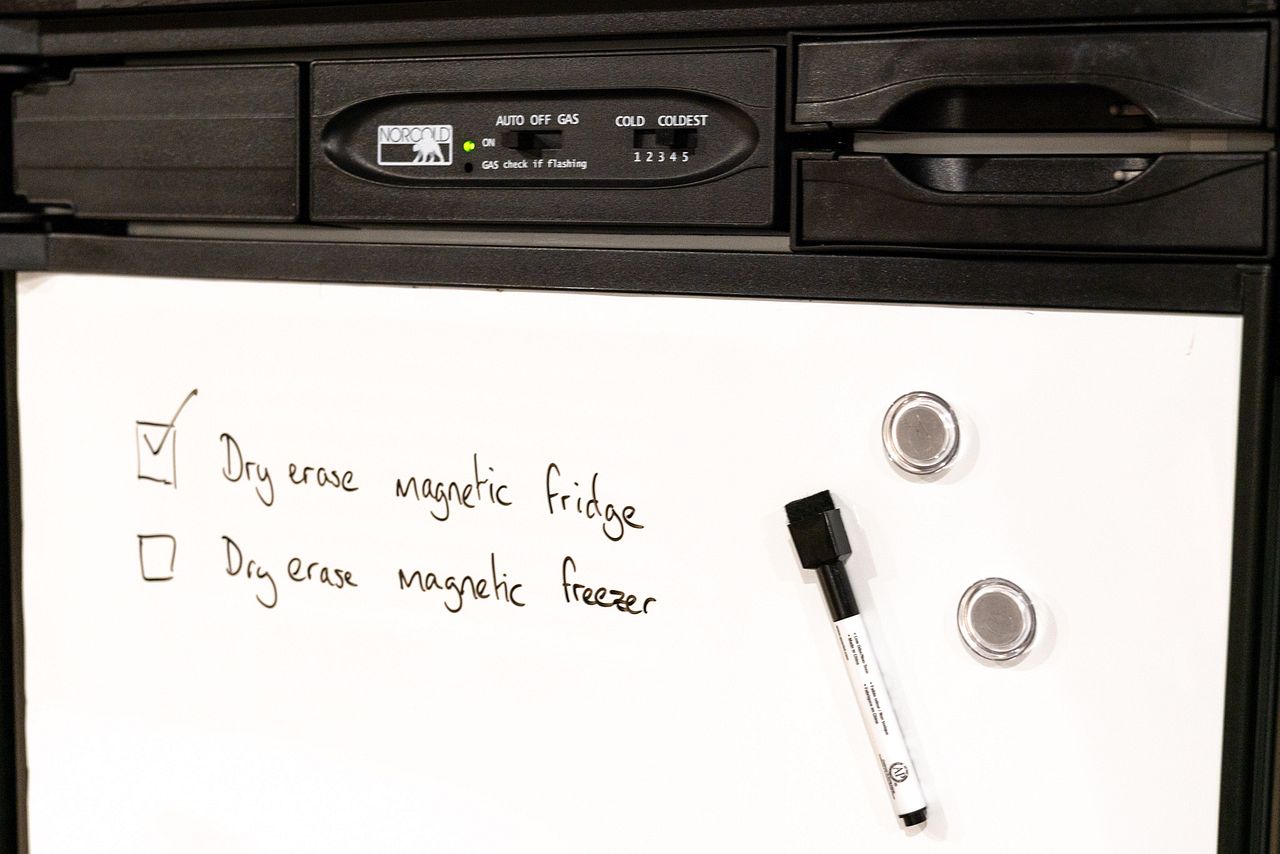 NORCOLD
AUTO OFF GAS
ON
GAS check if flashing
COLD COLDEST
1 2 3 4 5
Dry erase magnetic fridge
Dry erase magnetic freezer